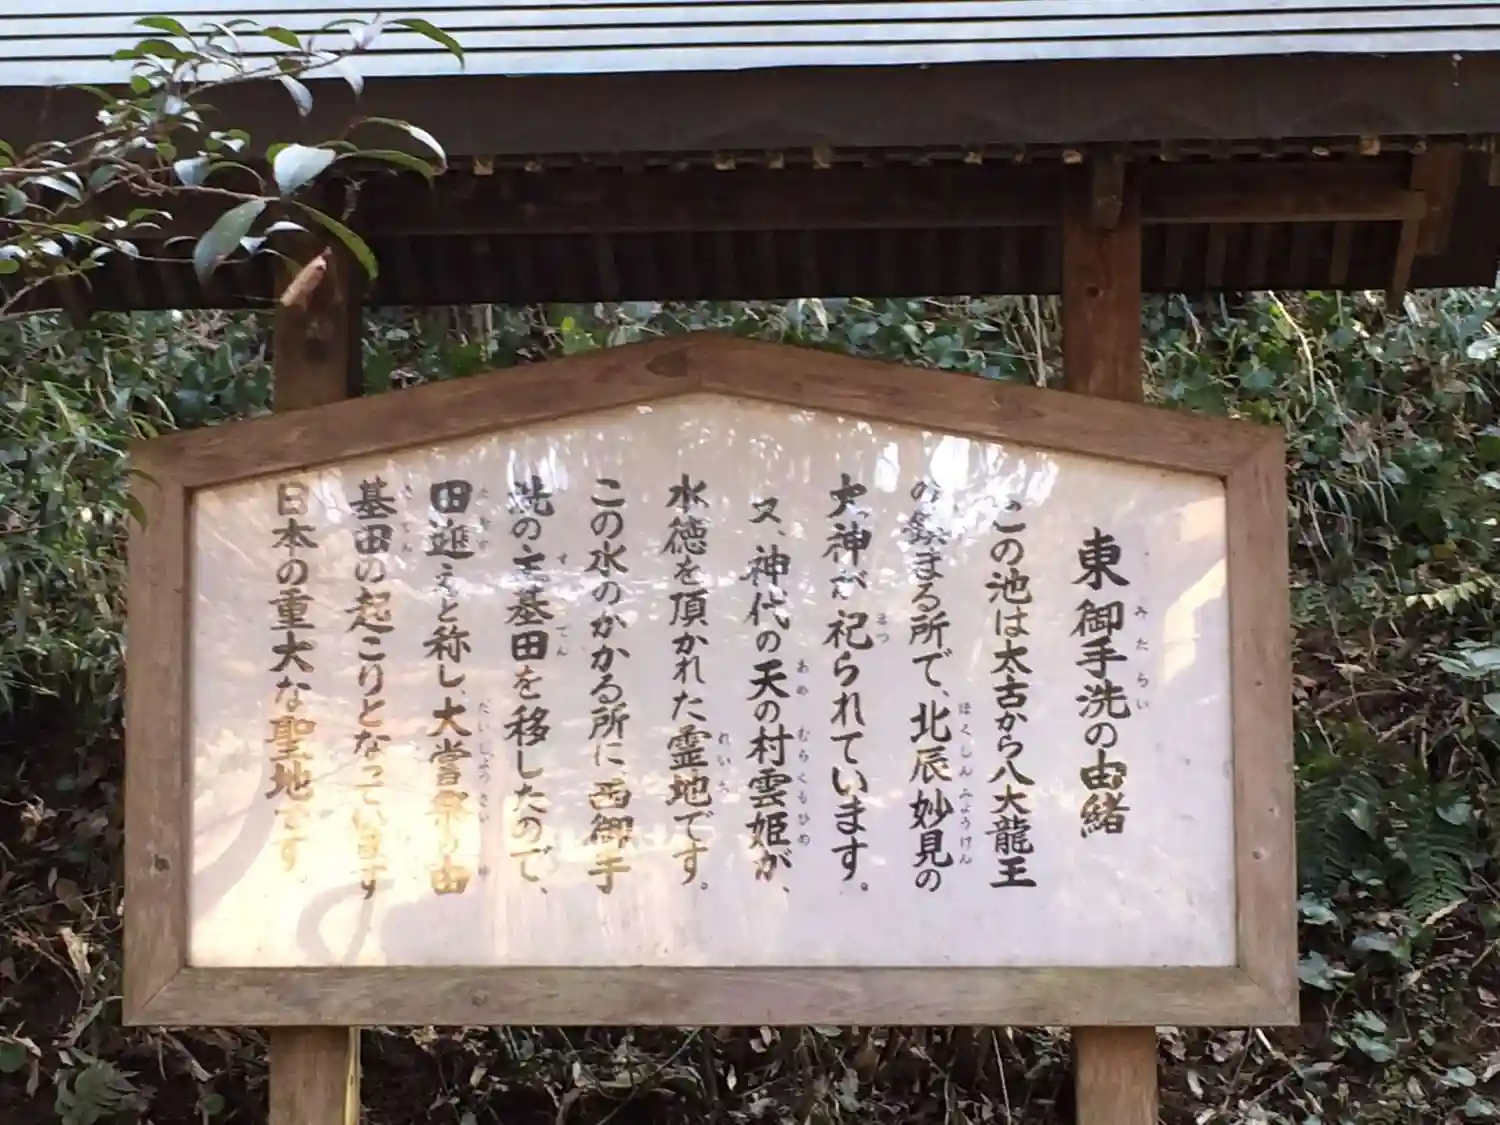 東御手洗の由緒
この池は太古から八大龍王
の鎮まる所で、北辰妙見の
大神が祀られています。
又、神代の天の村雲姫が、
水徳を頂かれた霊地です。
この水のかかる所に西御手
洗の主基田を移したので、
田進えと称し、大嘗祭の由
基田の起こりとなっています
日本の重大な聖地です。